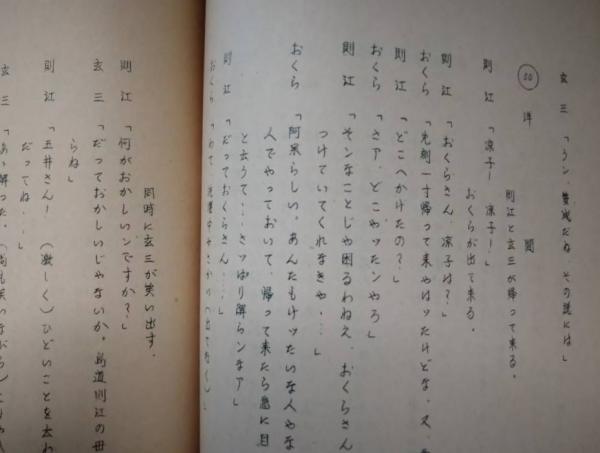 玄三「うン、賛成だね、その説には」
50 洋間
則江と玄三が帰って来る。
則江「凉子! 凉子!」
おくらが出て来る。
則江「おくらさん、凉子は?」
おくら「先刻一寸帰って来やはッたけどな、又、
則江「どこへかけたの?」
おくら「さァ、どこやッたンやろ」
則江「そンなことじゃ困るわねえ、おくらさん
つけていてくれなきゃ…」
おくら「阿呆らしい。あんたもけッたいな人やな
人でやっておいて、帰って来たら急に目
と云うて…さッぱり解らンなァ」
則江「だっておくらさん……」
おくら「わて、
同時に玄三が笑い出す。
則江「何がおかしいンですか?」
玄三「だっておかしいじゃないか。島道則江の母
らね」
則江「五井さん! (激しく)ひどいことを云わ
だってね…」
玄三「あゝ解った、(尚も笑いながら)